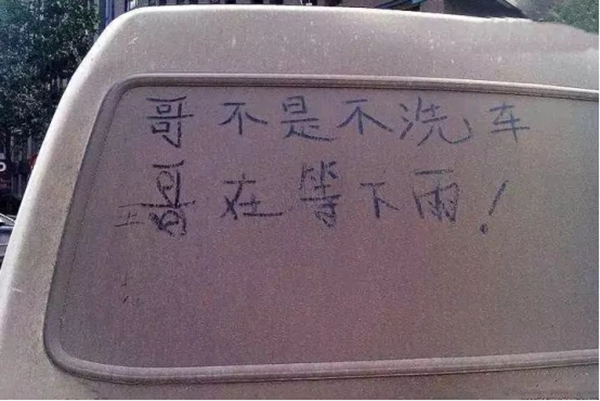 哥不是不洗车
哥在等下雨！